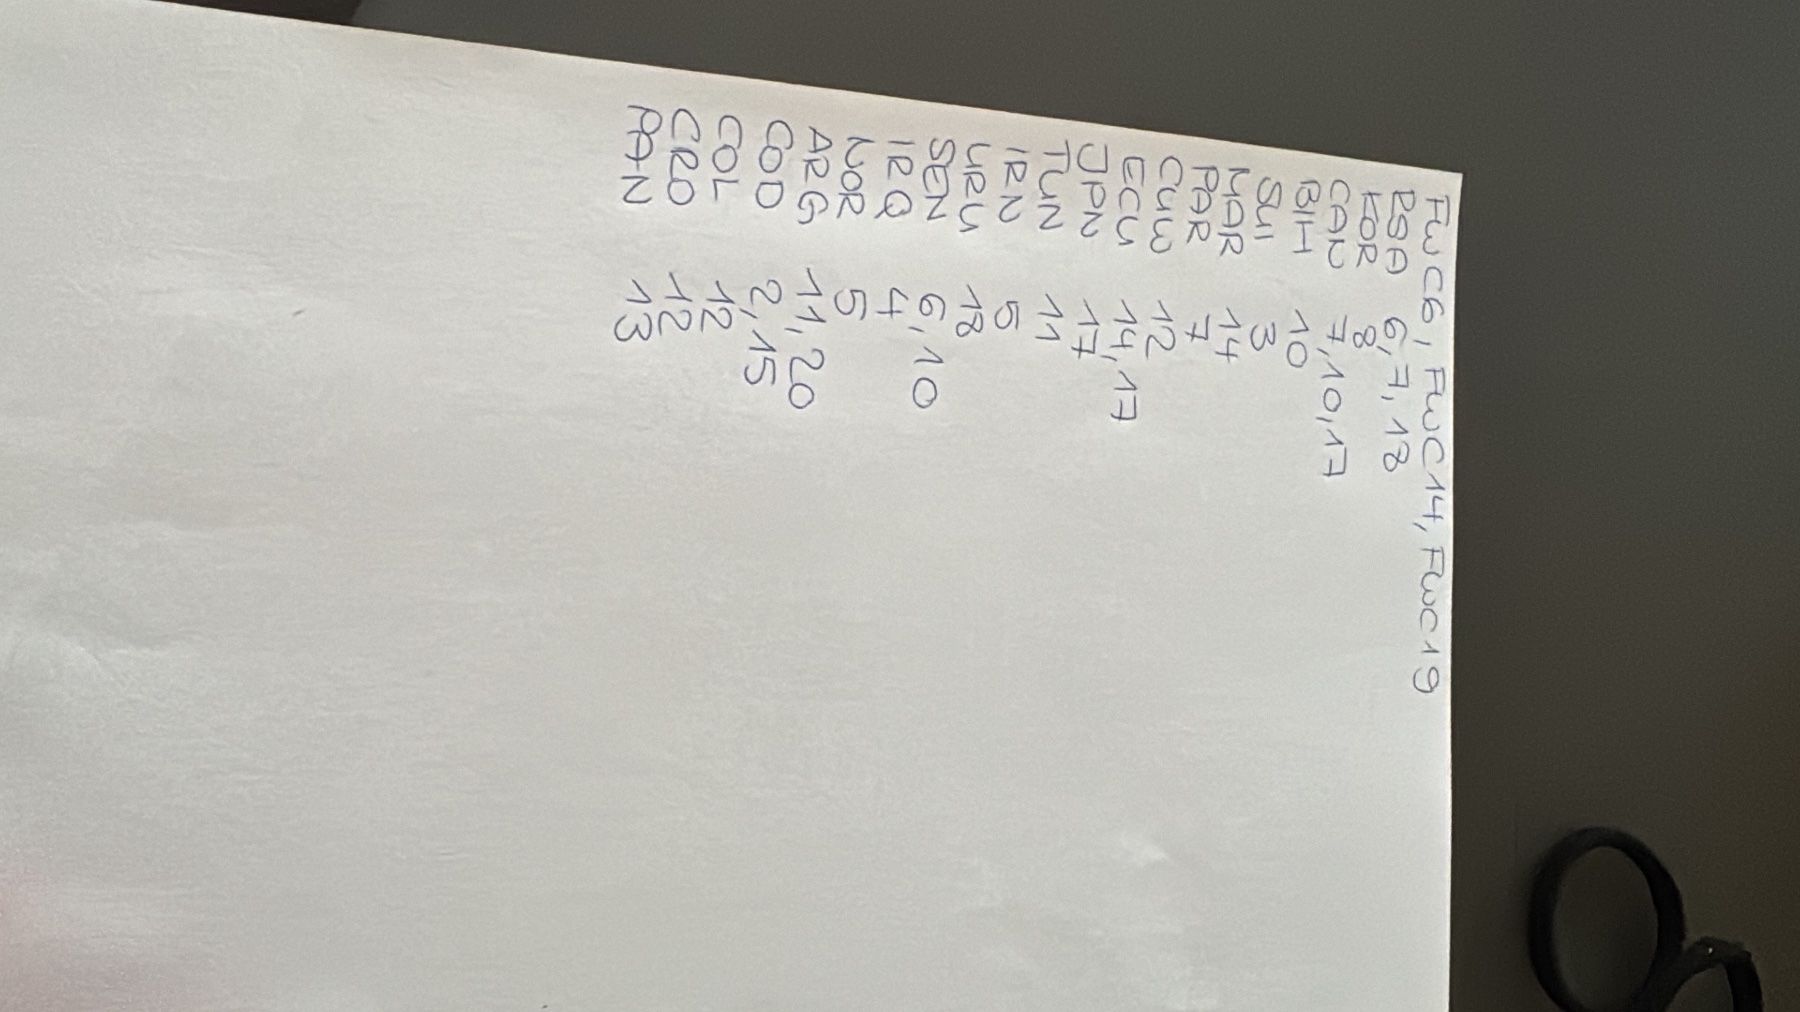 FWC6, FWC14, FWC19
RSA 6,7,18
KOR 8
CAN 7,10,17
BIH 10
SUI 3
MAR 14
PAR 7
CUW 12
ECU 14,17
JPN 17
TUN 11
IRN 5
URU 18
SEN 6,10
IRQ 4
NOR 5
ARG 11,20
COD 2,15
COL 12
CRO 12
PAN 13